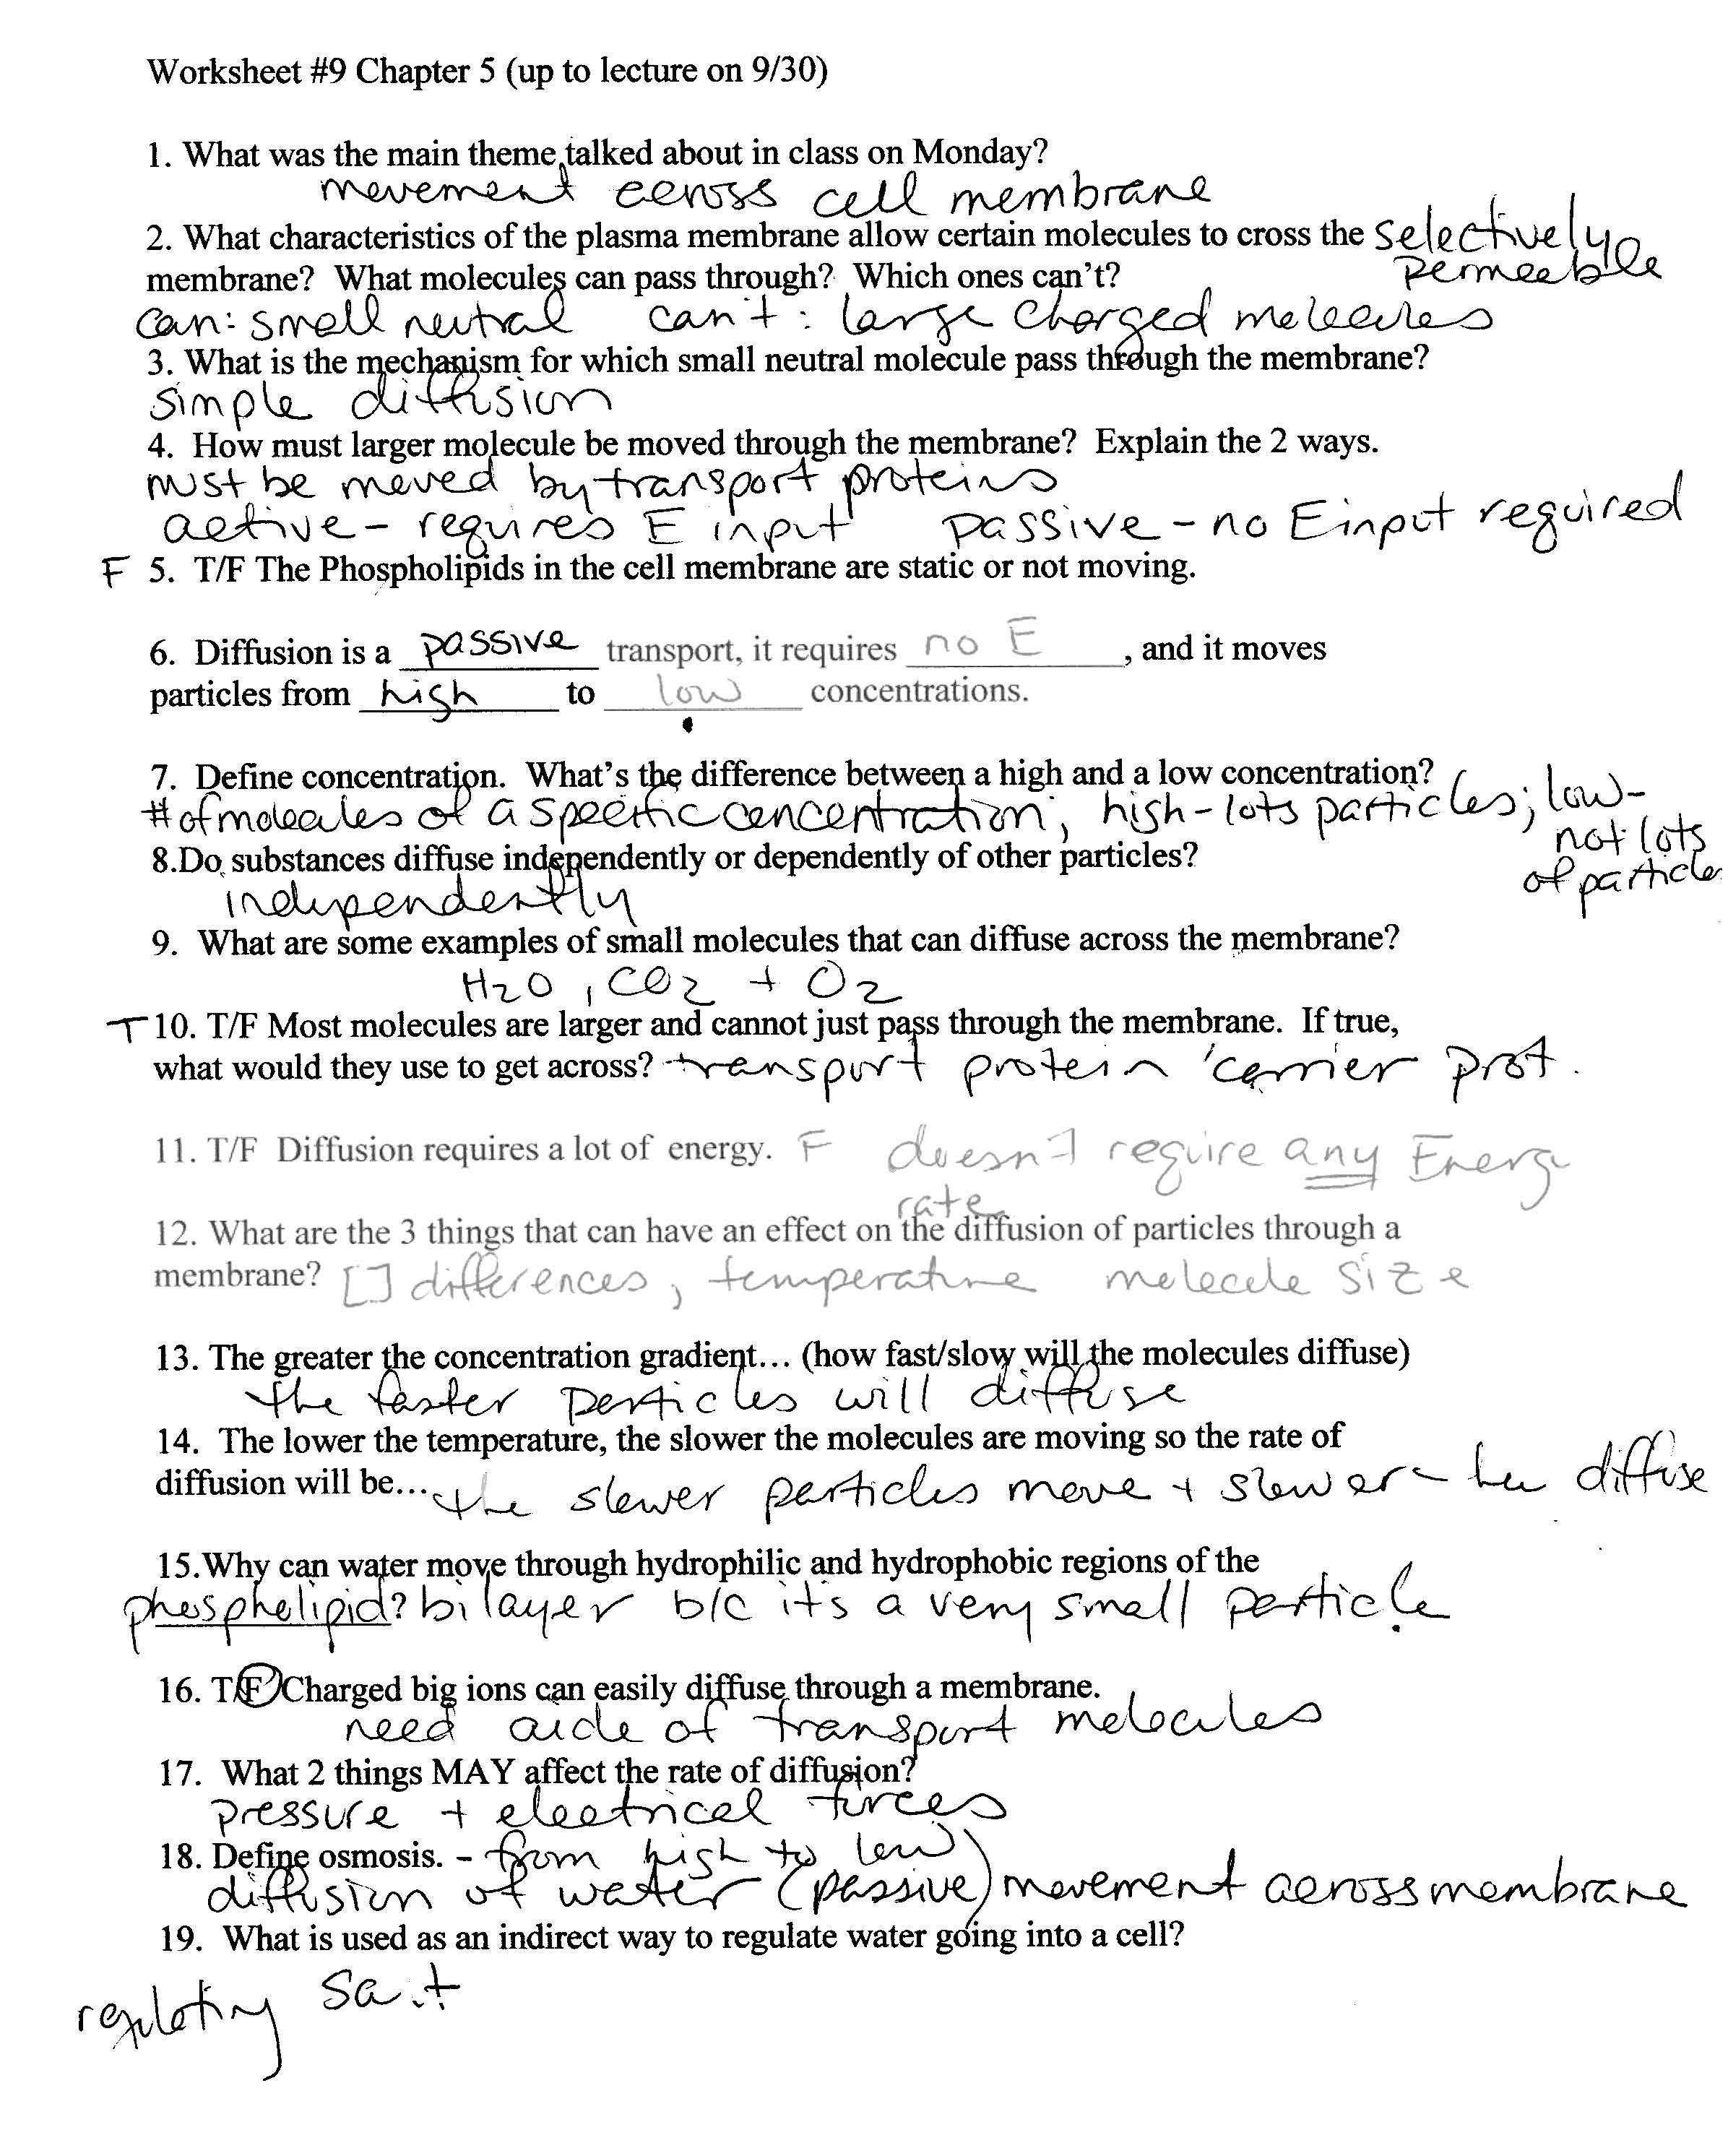 Worksheet #9 Chapter 5 (up to lecture on 9/30)
1. What was the main theme talked about in class on Monday?
movement across cell membrane
2. What characteristics of the plasma membrane allow certain molecules to cross the selectively
membrane? What molecules can pass through? Which ones can't? permeable
can: small neutral can't: large charged molecules
3. What is the mechanism for which small neutral molecule pass through the membrane?
simple diffusion
4. How must larger molecule be moved through the membrane? Explain the 2 ways.
must be moved by transport proteins
active - requires E input passive - no E input required
F 5. T/F The Phospholipids in the cell membrane are static or not moving.
6. Diffusion is a passive transport, it requires no E, and it moves
particles from high to low concentrations.
7. Define concentration. What's the difference between a high and a low concentration?
# of molecules of a specific concentration; high - lots particles; low -
not lots
of particles
8.Do substances diffuse independently or dependently of other particles?
independently
9. What are some examples of small molecules that can diffuse across the membrane?
H2O, CO2 + O2
T 10. T/F Most molecules are larger and cannot just pass through the membrane. If true,
what would they use to get across? transport protein 'carrier prot.
11. T/F Diffusion requires a lot of energy. F doesn't require any Energy
rate
12. What are the 3 things that can have an effect on the diffusion of particles through a
membrane? [] differences, temperature molecule size
13. The greater the concentration gradient... (how fast/slow will the molecules diffuse)
the faster particles will diffuse
14. The lower the temperature, the slower the molecules are moving so the rate of
diffusion will be... the slower particles move + slower diffuse
15.Why can water move through hydrophilic and hydrophobic regions of the
phospholipid? bilayer b/c it's a very small particle
16. T/F Charged big ions can easily diffuse through a membrane.
need aide of transport molecules
17. What 2 things MAY affect the rate of diffusion?
pressure + electrical forces
18. Define osmosis. - from high to low
diffusion of water (passive) movement across membrane
19. What is used as an indirect way to regulate water going into a cell?
regulating salt